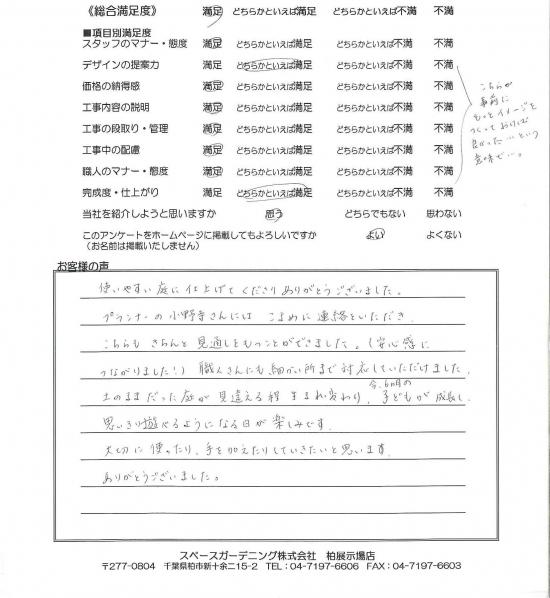 《総合満足度》 満足 どちらかといえば満足 どちらかといえば不満 不満
■項目別満足度
スタッフのマナー・態度 満足 どちらかといえば満足 どちらかといえば不満 不満
デザインの提案力 満足 どちらかといえば満足 どちらかといえば不満 不満
価格の納得感 満足 どちらかといえば満足 どちらかといえば不満 不満
工事内容の説明 満足 どちらかといえば満足 どちらかといえば不満 不満
工事の段取り・管理 満足 どちらかといえば満足 どちらかといえば不満 不満
工事中の配慮 満足 どちらかといえば満足 どちらかといえば不満 不満
職人のマナー・態度 満足 どちらかといえば満足 どちらかといえば不満 不満
完成度・仕上がり 満足 どちらかといえば満足 どちらかといえば不満 不満
こちらが
事前に
もっとイメージを
つくっておけば
良かった…という
意味で…。
当社を紹介しようと思いますか 思う どちらでもない 思わない
このアンケートをホームページに掲載してもよろしいですか よい よくない
(お名前は掲載いたしません)
お客様の声
使いやすい庭に仕上げてくださりありがとうございました。
プランナーの小野寺さんには こまめに連絡をいただき
こちらも きちんと見通しをもつことができました。(安心感に
つながりました!) 職人さんにも細かい所まで対応していただけました。
土のままだった庭が見違える程 生まれ変わり、今、6ヵ月の子どもが成長し、
思いきり遊べるようになる日が楽しみです。
大切に使ったり、手を加えたりしていきたいと思います。
ありがとうございました。
スペースガーデニング株式会社 柏展示場店
〒277-0804 千葉県柏市新十余二15-2 TEL:04-7197-6606 FAX:04-7197-6603